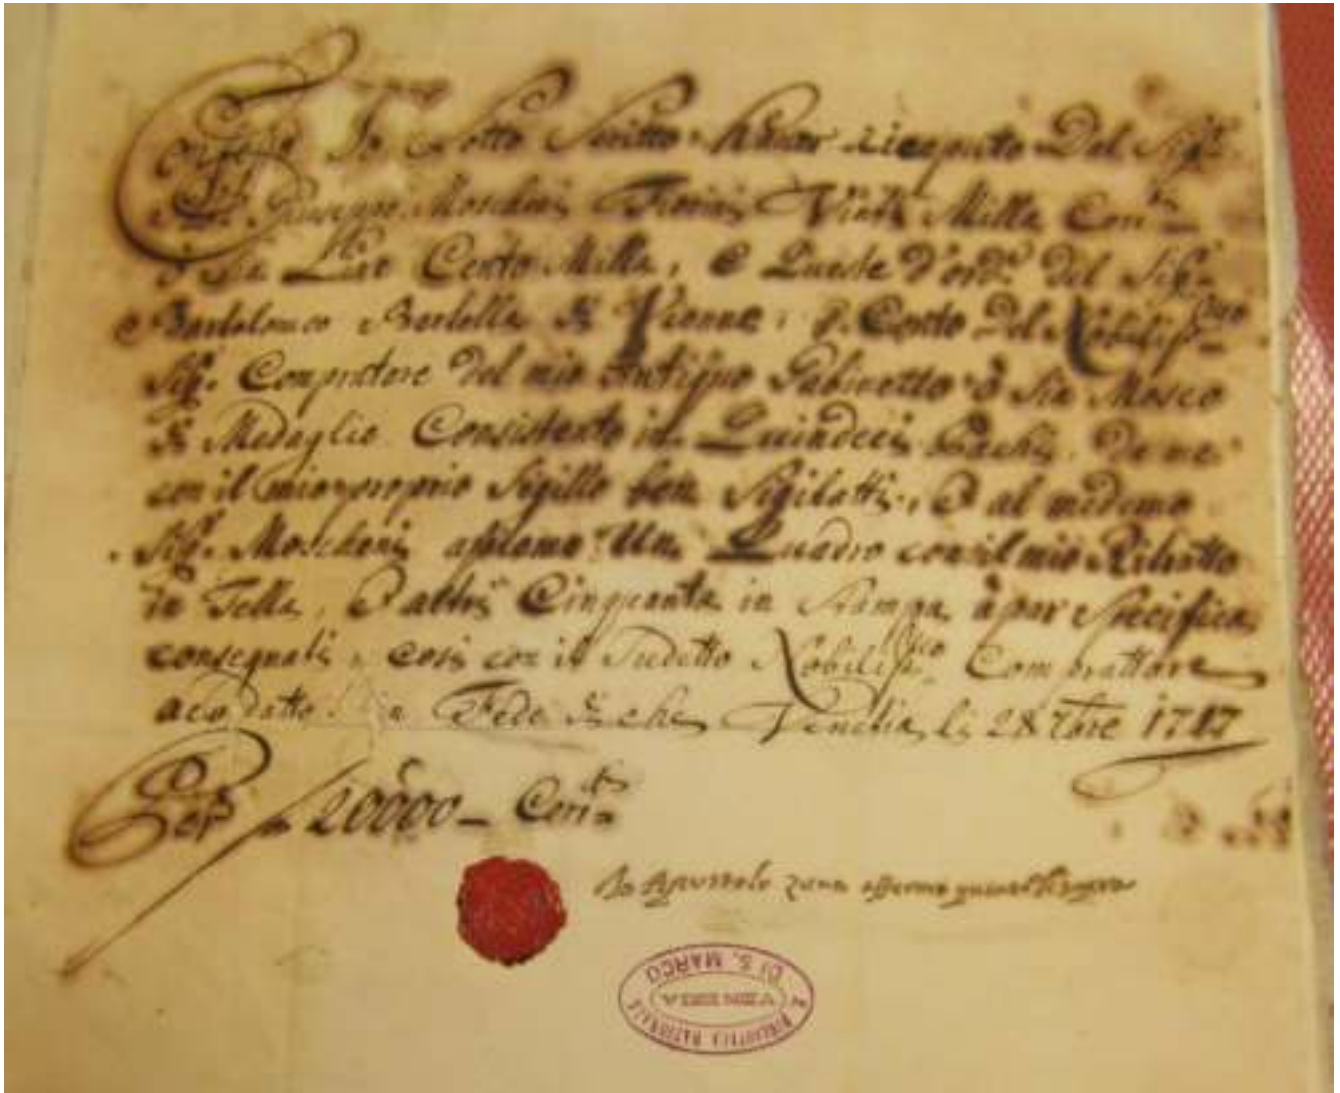 Confesso Io Sotto Scritto hauer riceputo Dal Sigr.
Giuseppe Moschini Fiorini Vinti Milla Conti
ò Sia Lire Cento Milla, e Queste d'orde. del Sigr.
Bartolomeo Bertolla di Viena, p. Conto Del Nobilissmo
Sigr. Compratore del mio Antiquo Gabinetto ò Sia Moseo
di Medaglie Consistente in Quindeci Bachi. Da me
con il mio proprio Sigillo ben Sigilatti, E al medemo
Sigr. Moschini Un Quadro con il mio Ritratto
in Tella, E altri Cinquanta in Stampa à par Specifica
consegnati, cosi con il Sudetto Nobilissmo Comprattore
acordatto. In Fede di che Venetia li 28 7bre 1747
Per 20000 – Conti
Io Apostolo Zeno affermo quanto di sopra
R. BIBLIOTECA NAZIONALE
DI S. MARCO
VENEZIA